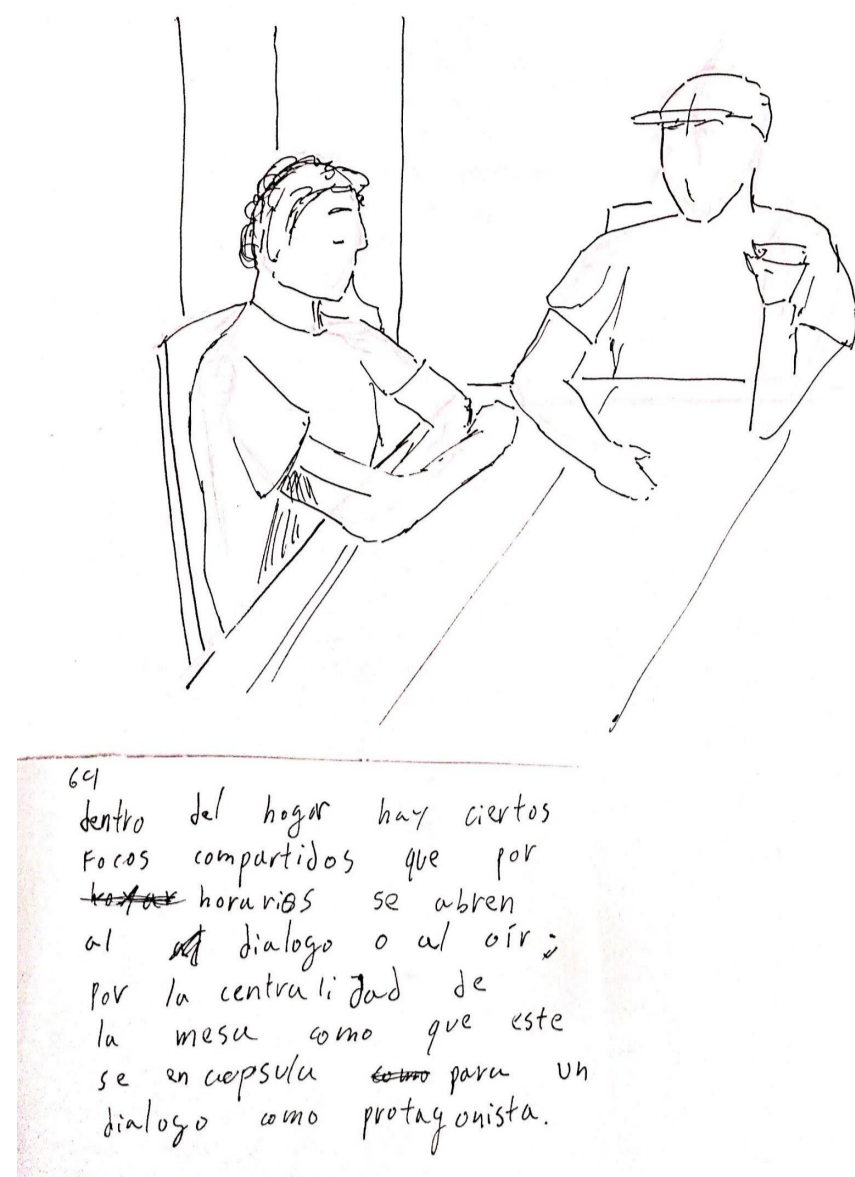 69
dentro del hogar hay ciertos
Focos compartidos que por
horarios se abren
al dialogo o al oír;
por la centralidad de
la mesa como que este
se encapsula como para un
dialogo como protagonista.